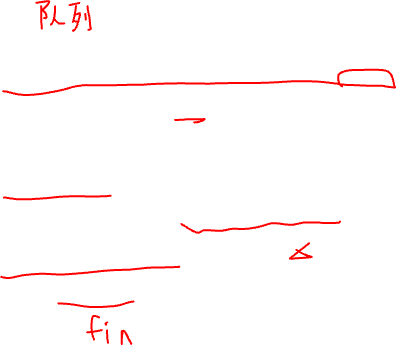 队列
fin